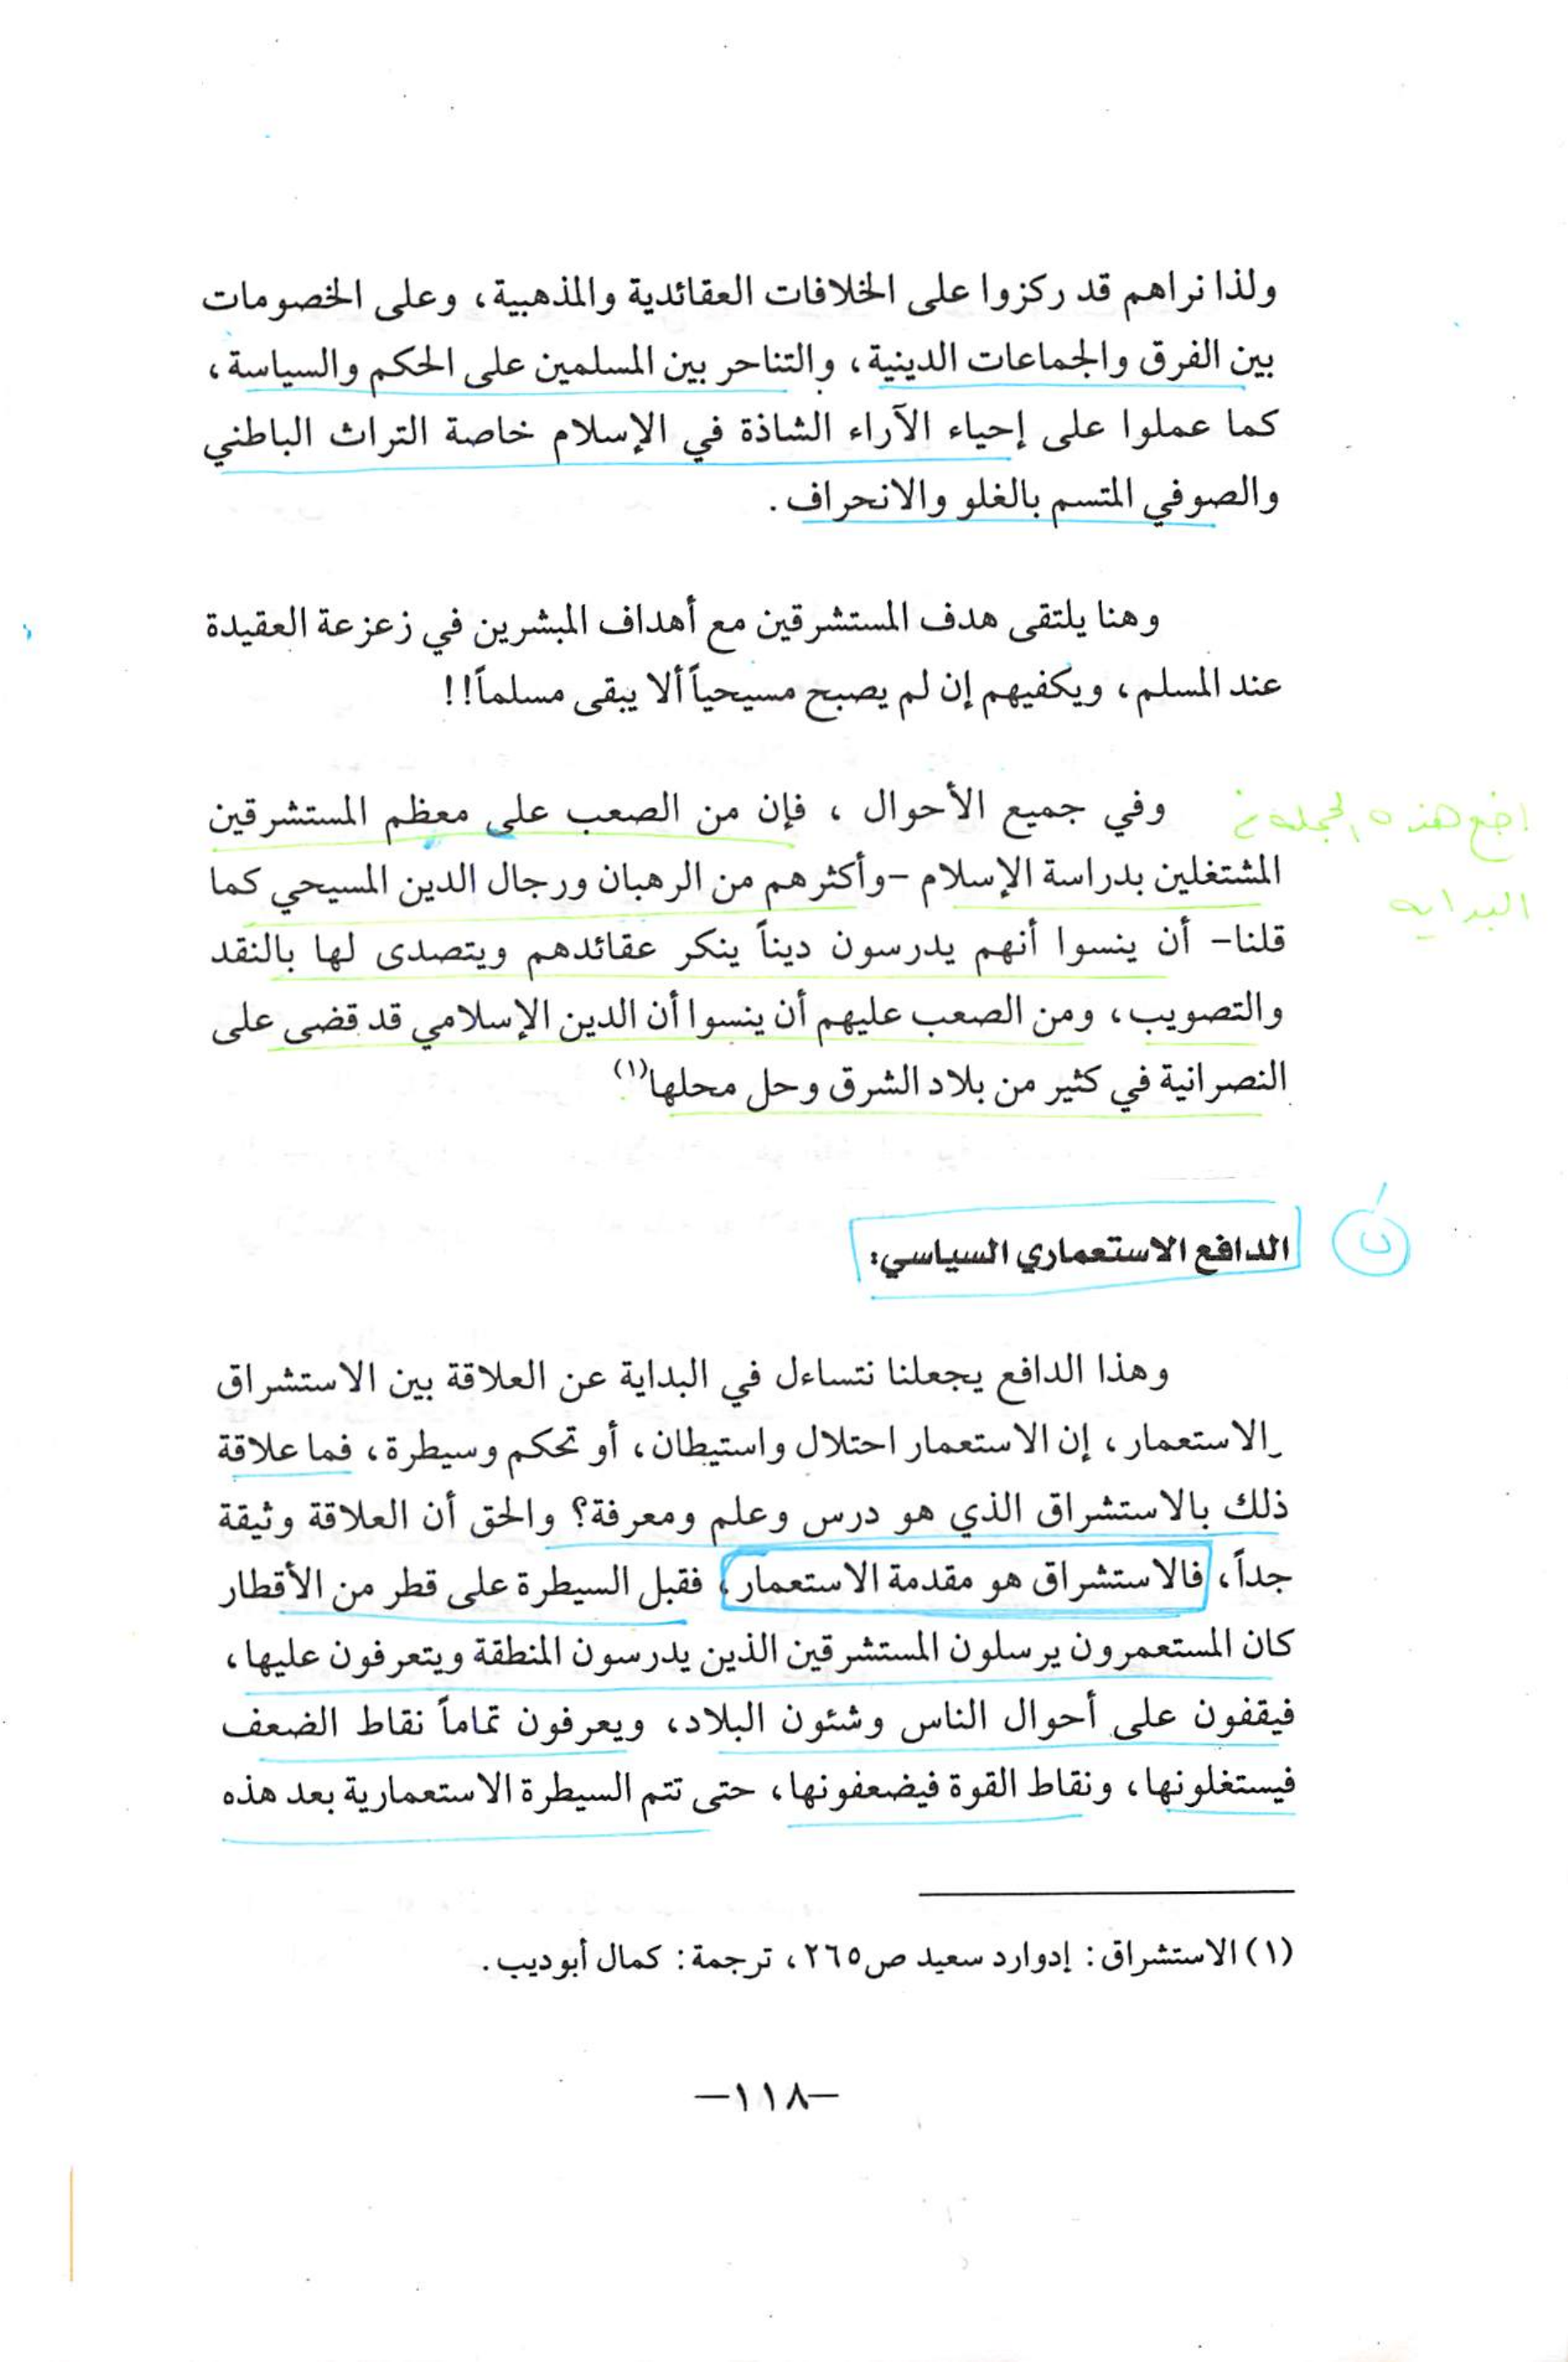 ولذا نراهم قد ركزوا على الخلافات العقائدية والمذهبية، وعلى الخصومات
بين الفرق والجماعات الدينية، والتناحر بين المسلمين على الحكم والسياسة،
كما عملوا على إحياء الآراء الشاذة في الإسلام خاصة التراث الباطني
والصوفي المتسم بالغلو والانحراف.
وهنا يلتقى هدف المستشرقين مع أهداف المبشرين في زعزعة العقيدة
عند المسلم، ويكفيهم إن لم يصبح مسيحياً ألا يبقى مسلماً!!
وفي جميع الأحوال ، فإن من الصعب على معظم المستشرقين
المشتغلين بدراسة الإسلام -وأكثرهم من الرهبان ورجال الدين المسيحي كما
قلنا- أن ينسوا أنهم يدرسون ديناً ينكر عقائدهم ويتصدى لها بالنقد
والتصويب، ومن الصعب عليهم أن ينسوا أن الدين الإسلامي قد قضى على
النصرانية في كثير من بلاد الشرق وحل محلها(١)
هذه الجملة
البدايه
الدافع الاستعماري السياسي:
وهذا الدافع يجعلنا نتساءل في البداية عن العلاقة بين الاستشراق
والاستعمار، إن الاستعمار احتلال واستيطان، أو تحكم وسيطرة، فما علاقة
ذلك بالاستشراق الذي هو درس وعلم ومعرفة؟ والحق أن العلاقة وثيقة
جداً، فالاستشراق هو مقدمة الاستعمار، فقبل السيطرة على قطر من الأقطار
كان المستعمرون يرسلون المستشرقين الذين يدرسون المنطقة ويتعرفون عليها،
فيقفون على أحوال الناس وشئون البلاد، ويعرفون تماماً نقاط الضعف
فيستغلونها، ونقاط القوة فيضعفونها، حتى تتم السيطرة الاستعمارية بعد هذه
(١) الاستشراق: إدوارد سعيد ص٢٦٥، ترجمة: كمال أبوديب.
-١١٨-